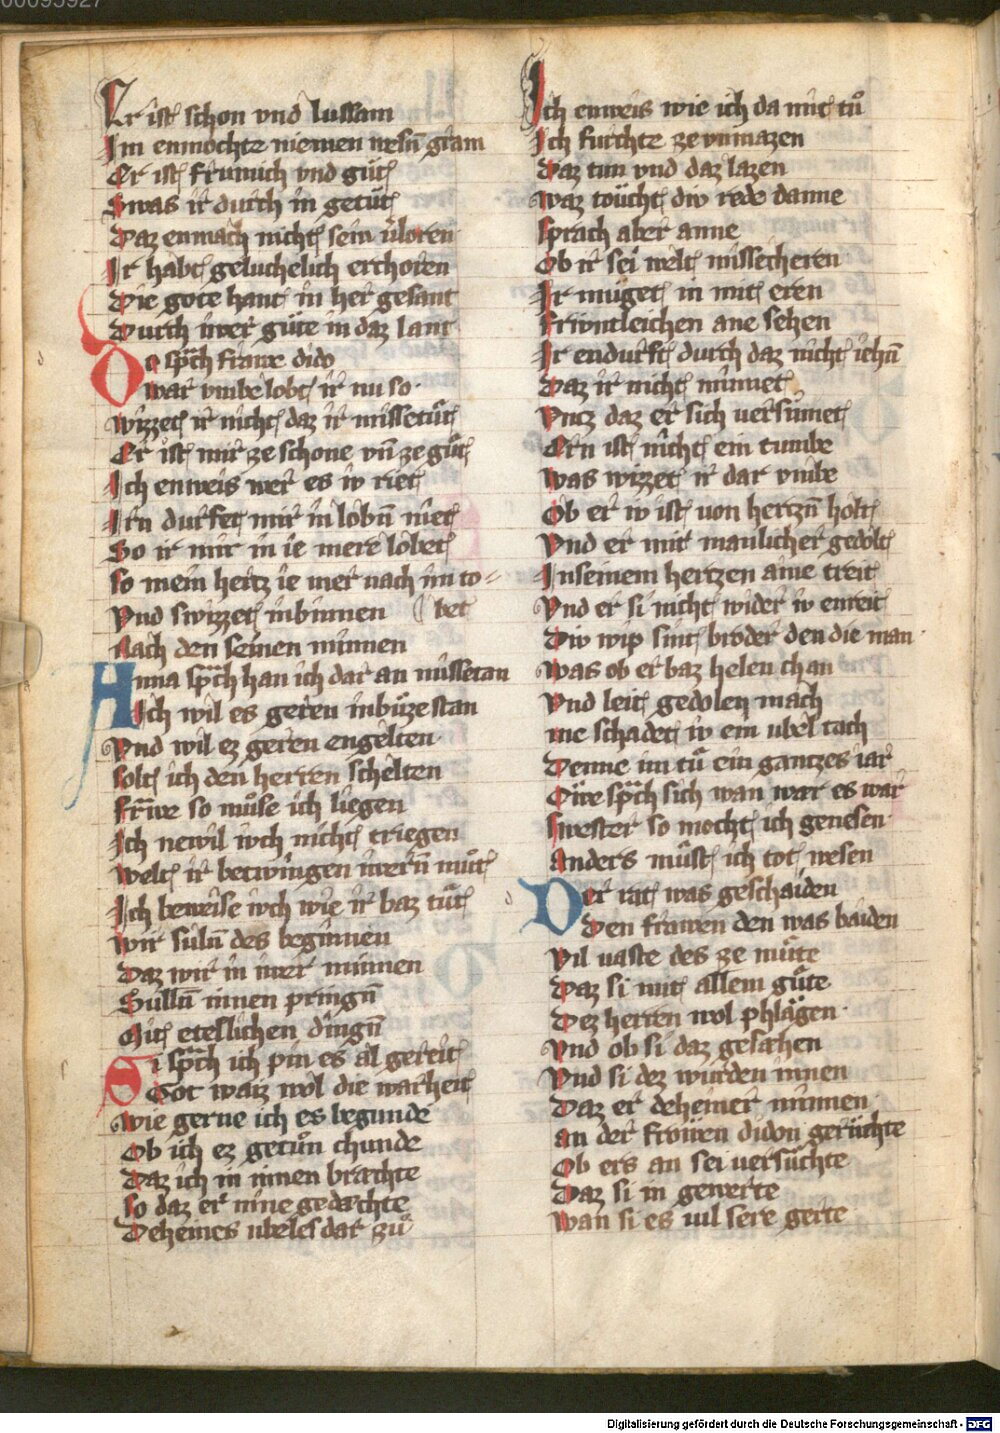 00095927
Er ist schon vnd lussam
Im enmochte niemen wesn̄ gram
Er ist frumich vnd guͦt
Swas ir durch in getuͦt
Daz enmach nicht sein v̓loren
Ir habt geluchelich erchoren
Die gote hant in her gesant
Durch iwer guͤte in daz lant
Do sp̄ch frawe dido
war vmbe lobt ir nu so
wizzet ir nicht daz ir missetuͦt
Er ist mir ze schone vn̄ ze guͦt
Ich enweis wer es iv riet
Irn durfet mir in lobn̄ niet
So ir mir in ie mere lobet
so mein hertz ie mer nach im to-
Vnd swizzet inbinnen bet
Nach den seinen minnen
Anna sp̄ch han ich dar an missetan
Ich wil es geren inbuͤze stan
Vnd wil ez geren engelten
solt ich den herren schelten
frāwe so muͦse ich liegen
Ich newil iwch nicht triegen
welt ir betwingen iwern̄ muͦt
Ich beweise iwch wie ir baz tuͦt
wir suln̄ des beginnen
Daz wir in iwer minnen
Sulln̄ innen pringn̄
Mit etelichen dingn̄
Si sp̄ch ich pin es al gereit
Got waiz wol die warheit
wie gerne ich es begunde
Ob ich ez getuͦn chunde
Daz ich in innen brachte
so daz er nine gedæchte
Deheines ubeles dar zuͦ
Ich enweis wie ich da mit tuͦ
Ich furchte ze vnmazen
Daz tun vnd daz lazen
waz toucht div rede danne
sprach aber anne
Ob ir sei welt missecheren
Ir muget in mit eren
frivntleichen ane sehen
Ir endurft durch daz nicht iehn̄
Daz ir nicht minnet
Vntz daz er sich uersinnet
Ern ist nicht ein tumbe
was wizzet ir dar vmbe
Ob er iv ist von hertzn̄ holt
Vnd er mit manlicher gedolt
In seinem hertzen aine treit
Vnd er si nicht wider iv enreit
Div wip sint broder den die man
was ob er baz helen chan
Vnd leit gedolen mach
me schadet iv ein ubel tach
Denne im tuͦ ein gantzes iar
Eire sp̄ch sich wan war es war
swester so mocht ich genesen
anders muͤst ich tot wesen
Der rat was geschaiden
Den frawen den was baiden
Vil vaste des ze muͦte
Daz si mit allem guͦte
Dez herren wol phlägen
Vnd ob si daz gesæhen
Vnd si dez wurden innen
Daz er deheiner minnen
an der froͮwen didon geruͦchte
Ob ers an sei uersuͦchte
Daz si in gewerte
wan si es uil sere gerte
Digitalisierung gefördert durch die Deutsche Forschungsgemeinschaft - DFG